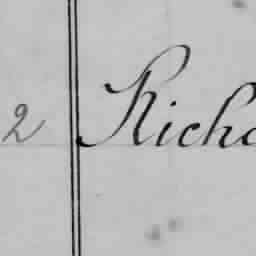 2 Richa